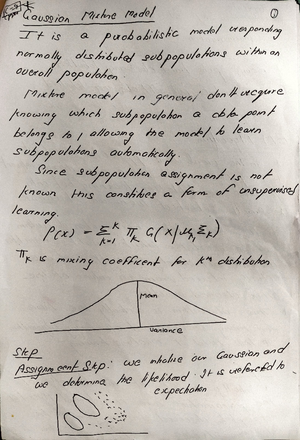 Gaussian Mixture Model ①
It is a probabilistic model
normally distributed subpopulations within an
overall population
Mixture model in general don't require
knowing which subpopulation a data point
belongs to, allowing the model to learn
subpopulations automatically.
Since subpopulation assignment is not
known this constities a form of unsupervised
learning.
P(x) = Σ_{k=1}^{K} π_k G(x|μ_k, Σ_k)
π_k is mixing coefficent for kth distribution
Mean
variance
Step
Assignment Step: we our Gaussian and
we determine the likelihood. It is referred to
expectation